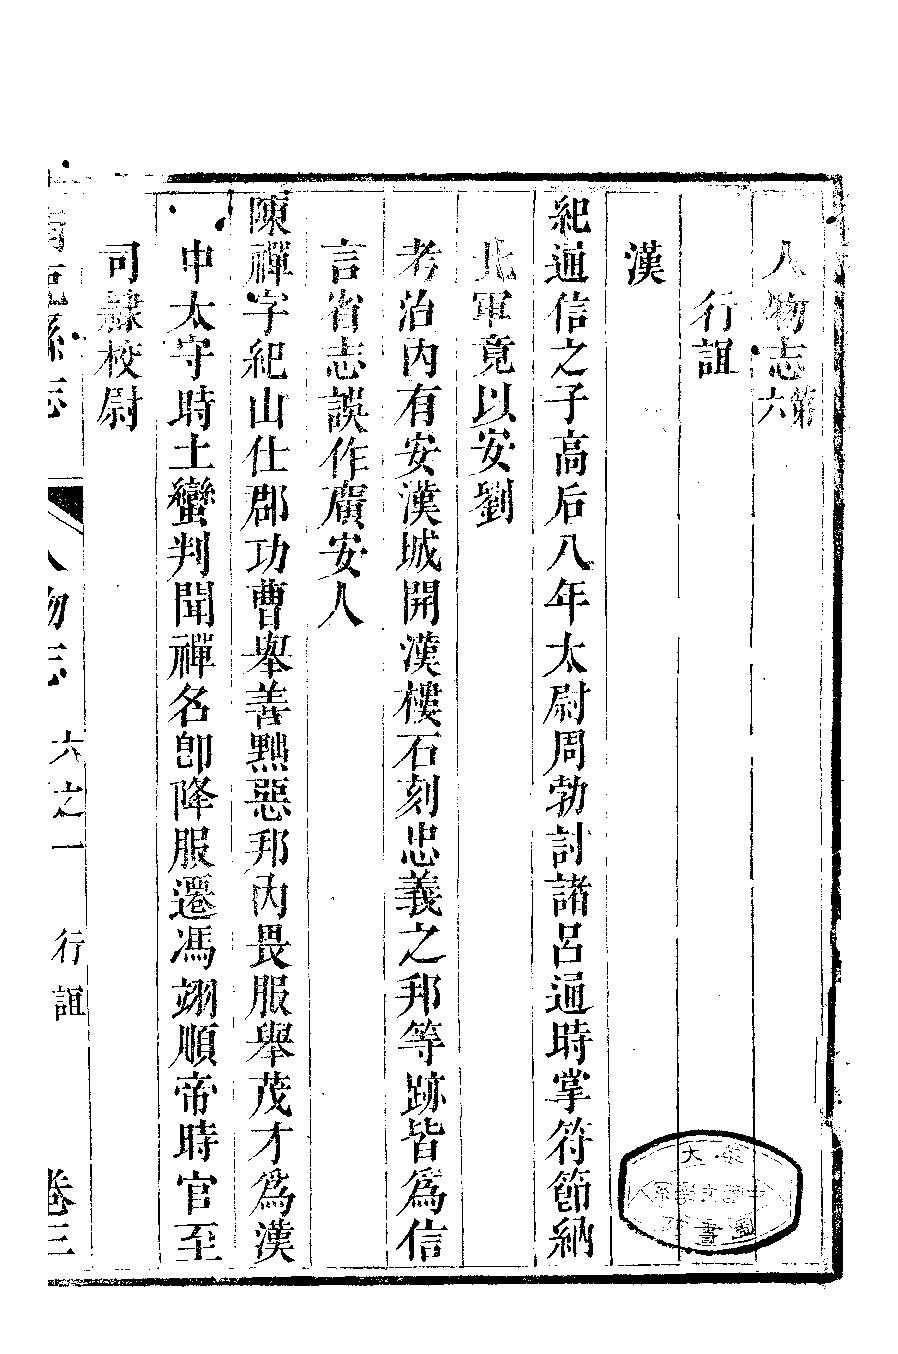 人物志第六
行誼
漢
紀通信之子高后八年太尉周勃討諸呂通時掌符節納
北軍竟以安劉
考治內有安漢城開漢樓石刻忠義之邦等跡皆為信
言省志誤作廣安人
陳禪字紀山仕郡功曹舉善黜惡邦內畏服舉茂才為漢
中太守時土蠻判聞禪名即降服遷馮翊順帝時官至
司隸校尉
縣志 人物志 六之一 行誼 卷三